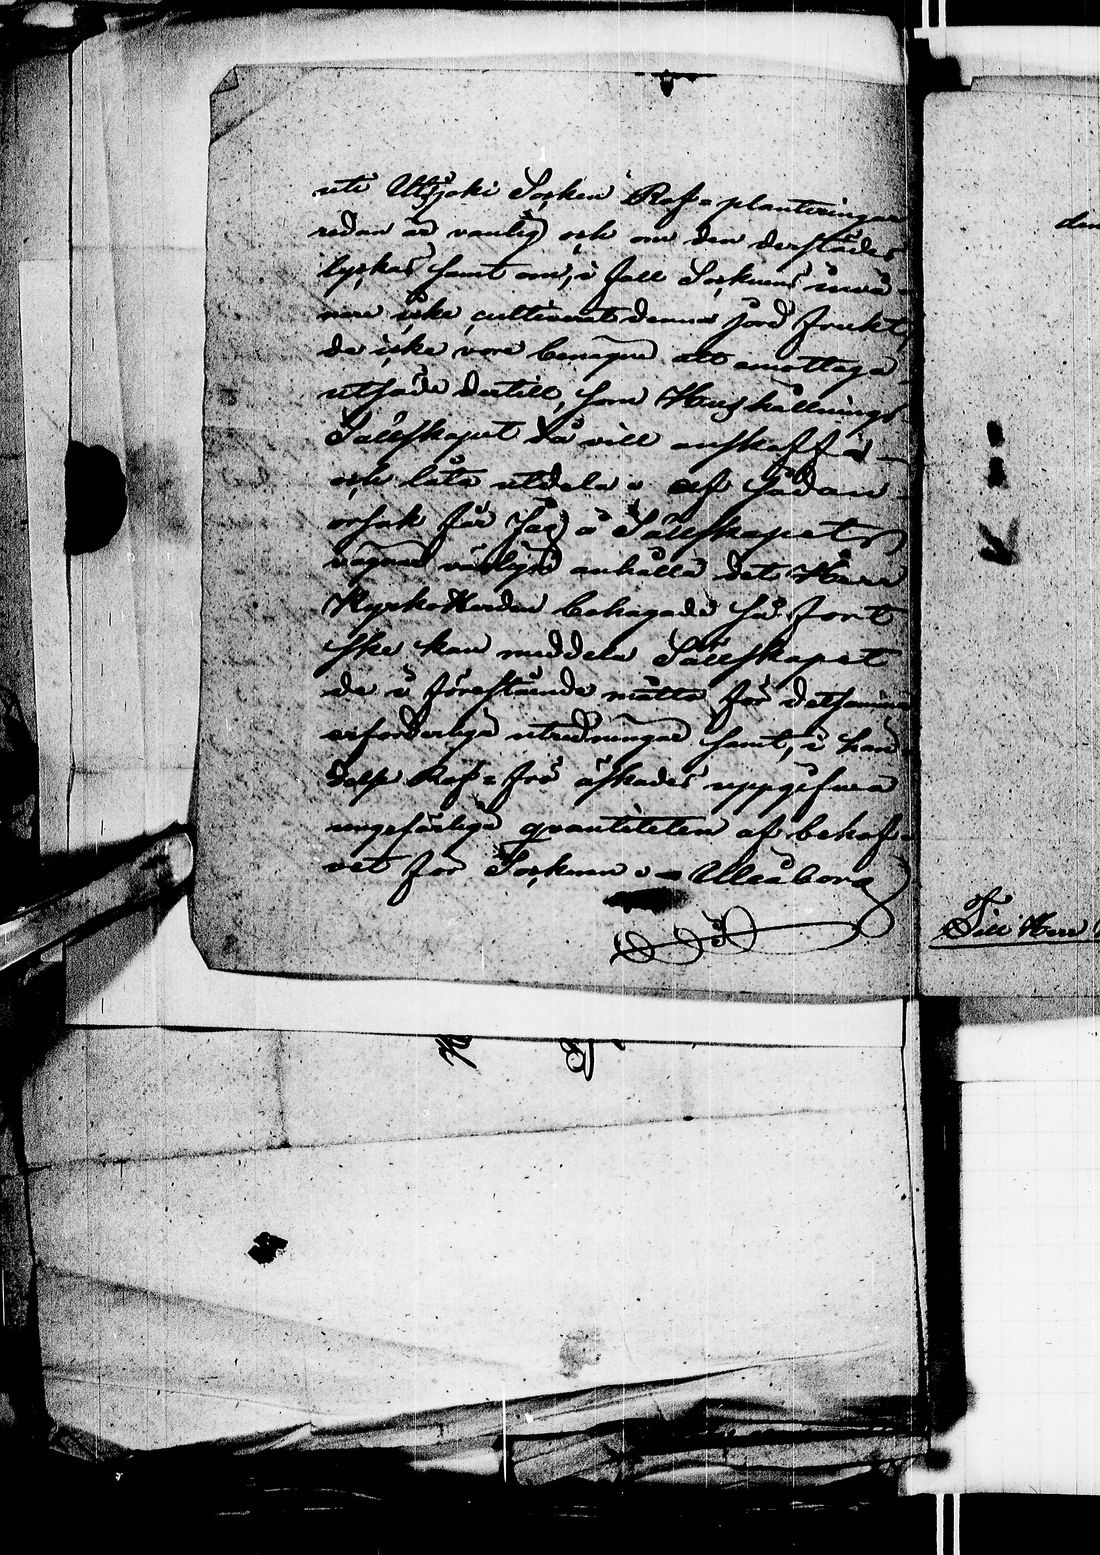 uti Utsjoki Socken Rof-planteringar
redan är vanlig och om den derstädes
lyckas samt om, i fall Socknens inva-
nare icke cultiverat denna jord frukt,
de icke vore benägne att emottaga
utsäde dertill, som Hushållnings
Sällskapet då vill anskaffa
och låta utdela. af sådan
orsak får jag å Sällskapets
vägnar vänligen anhålla det Herr
KyrkoHerden behagade så fort
ske kan meddela Sällskapet
de i förestående måtto för detsamma
erforderliga utredningar samt, i hän
delse Rof-frö åstundas uppgifva
ungefärliga qvantiteten af behof-
vet för Socknen. Uleåborg
den
Till Herr